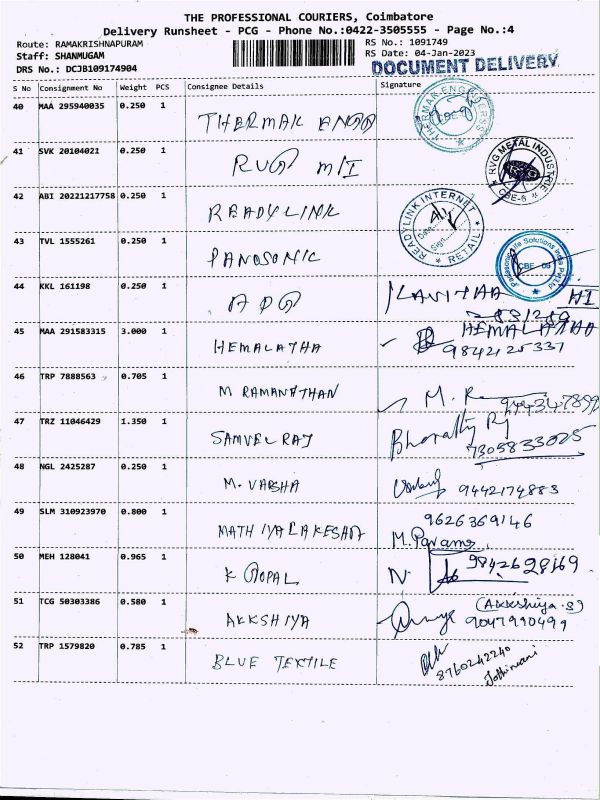 THE PROFESSIONAL COURIERS, Coimbatore
Delivery Runsheet - PCG - Phone No.:0422-3505555 - Page No.:4
Route: RAMAKRISHNAPURAM RS No.: 1091749
Staff: SHANMUGAM RS Date: 04-Jan-2023
DRS No.: DCJB109174904 DOCUMENT DELIVERY
S No Consignment No Weight PCS Consignee Details Signature
40 MAA 295940035 0.250 1 THERMAK ENGG THERMAK ENGINEERS CBE-6
41 SVK 20104021 0.250 1 RVG M/I RVG METAL INDUSTRIES CBE-6
42 ABI 20221217758 0.250 1 READYLINK READYLINK INTERNET RETAIL Date Sign
43 TVL 1555261 0.250 1 PANOSONIC Panasonic Life Solutions India Pvt Ltd CBE - 06
44 KKL 161198 0.250 1 KAVITHA
45 MAA 291583315 3.000 1 HEMALATHA HEMALATHA
9842125331
46 TRP 7888563 0.705 1 M RAMANATHAN M.
47 TRZ 11046429 1.350 1 SAMVEL RAJ Bharathy Rj
7305833025
48 NGL 2425287 0.250 1 M. VARSHA 9442174883
49 SLM 310923970 0.800 1 MATHIYALAKESHA 9626369146
M. Parama
50 MEH 128041 0.965 1 K GOPAL 9842628169
51 TCG 50303386 0.580 1 AKKSHIYA (Akkshiya.S)
9047990499
52 TRP 1579820 0.785 1 BLUE TEXTILE 8760242240
Jothimani